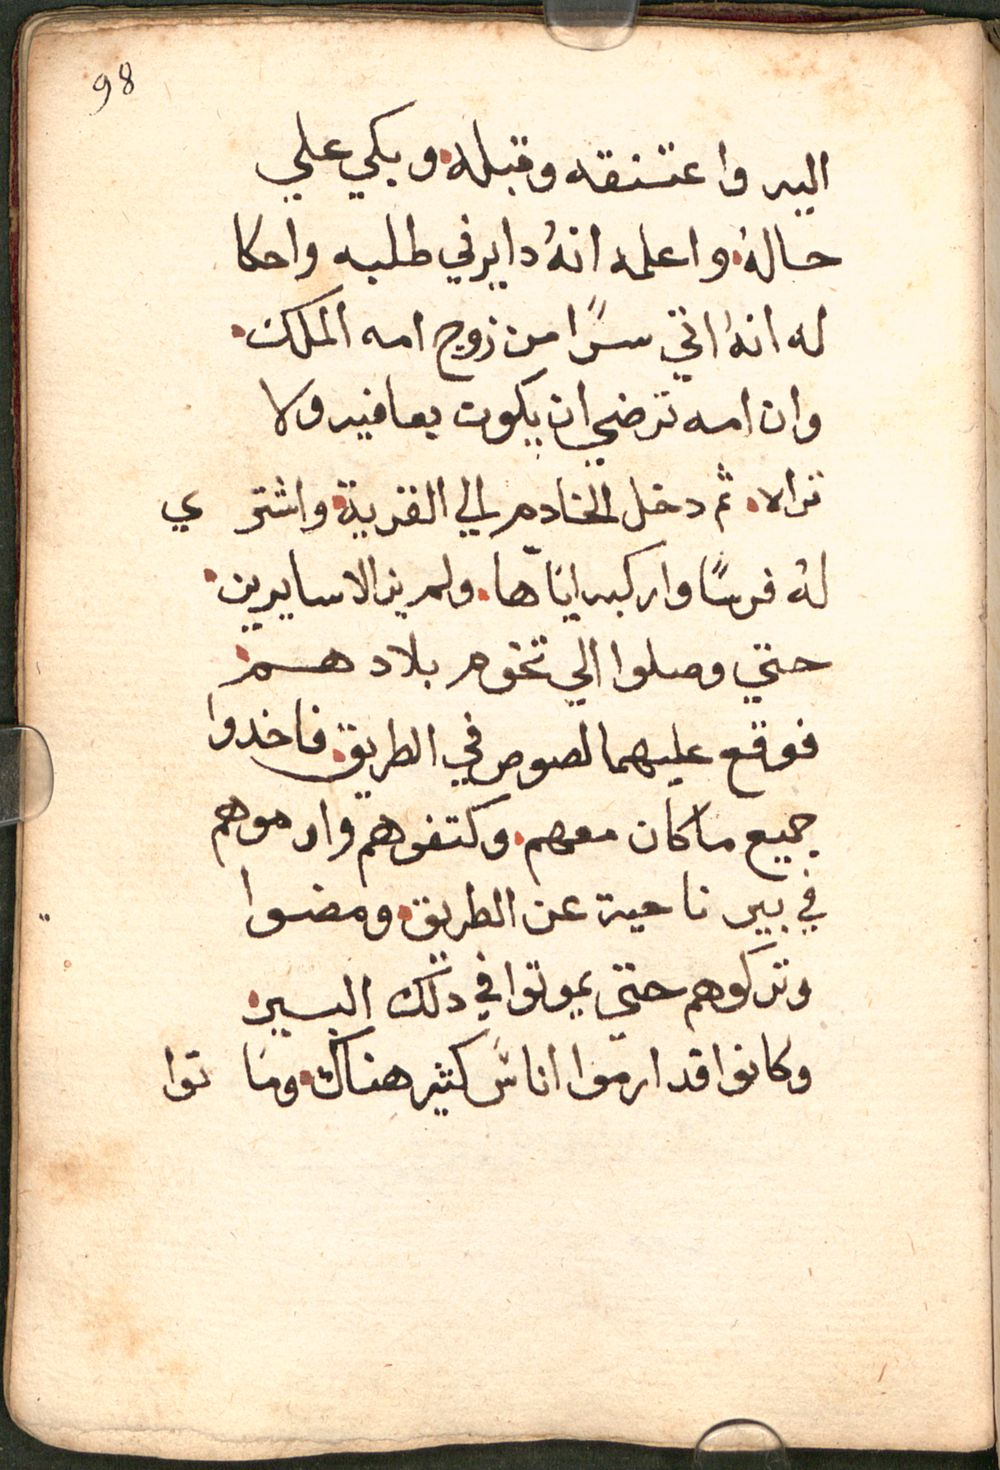 98
اليه واعتنقه وقبله. وبكي علي
حالهُ. واعلمه انهُ داير في طلبه واحكا
له انهُ اتي سرًا من زوج امه الملك.
وان امه ترضي ان يكون بعافيه ولا
تراه. ثم دخل الخادم الي القرية. واشتري
لهُ فرسًا واركبه اياها. ولم يزالا سايرين.
حتي وصلوا الي تخوم بلادهم.
فوقع عليهما لصوص في الطريق. فاخدوا
جميع ما كان معهم. وكتفوهم وارموهم
في بير ناحية عن الطريق. ومضوا
وتركوهم حتي يموتوا في دلك البير.
وكانوا قد ارموا اناس كثير هناك. وماتوا